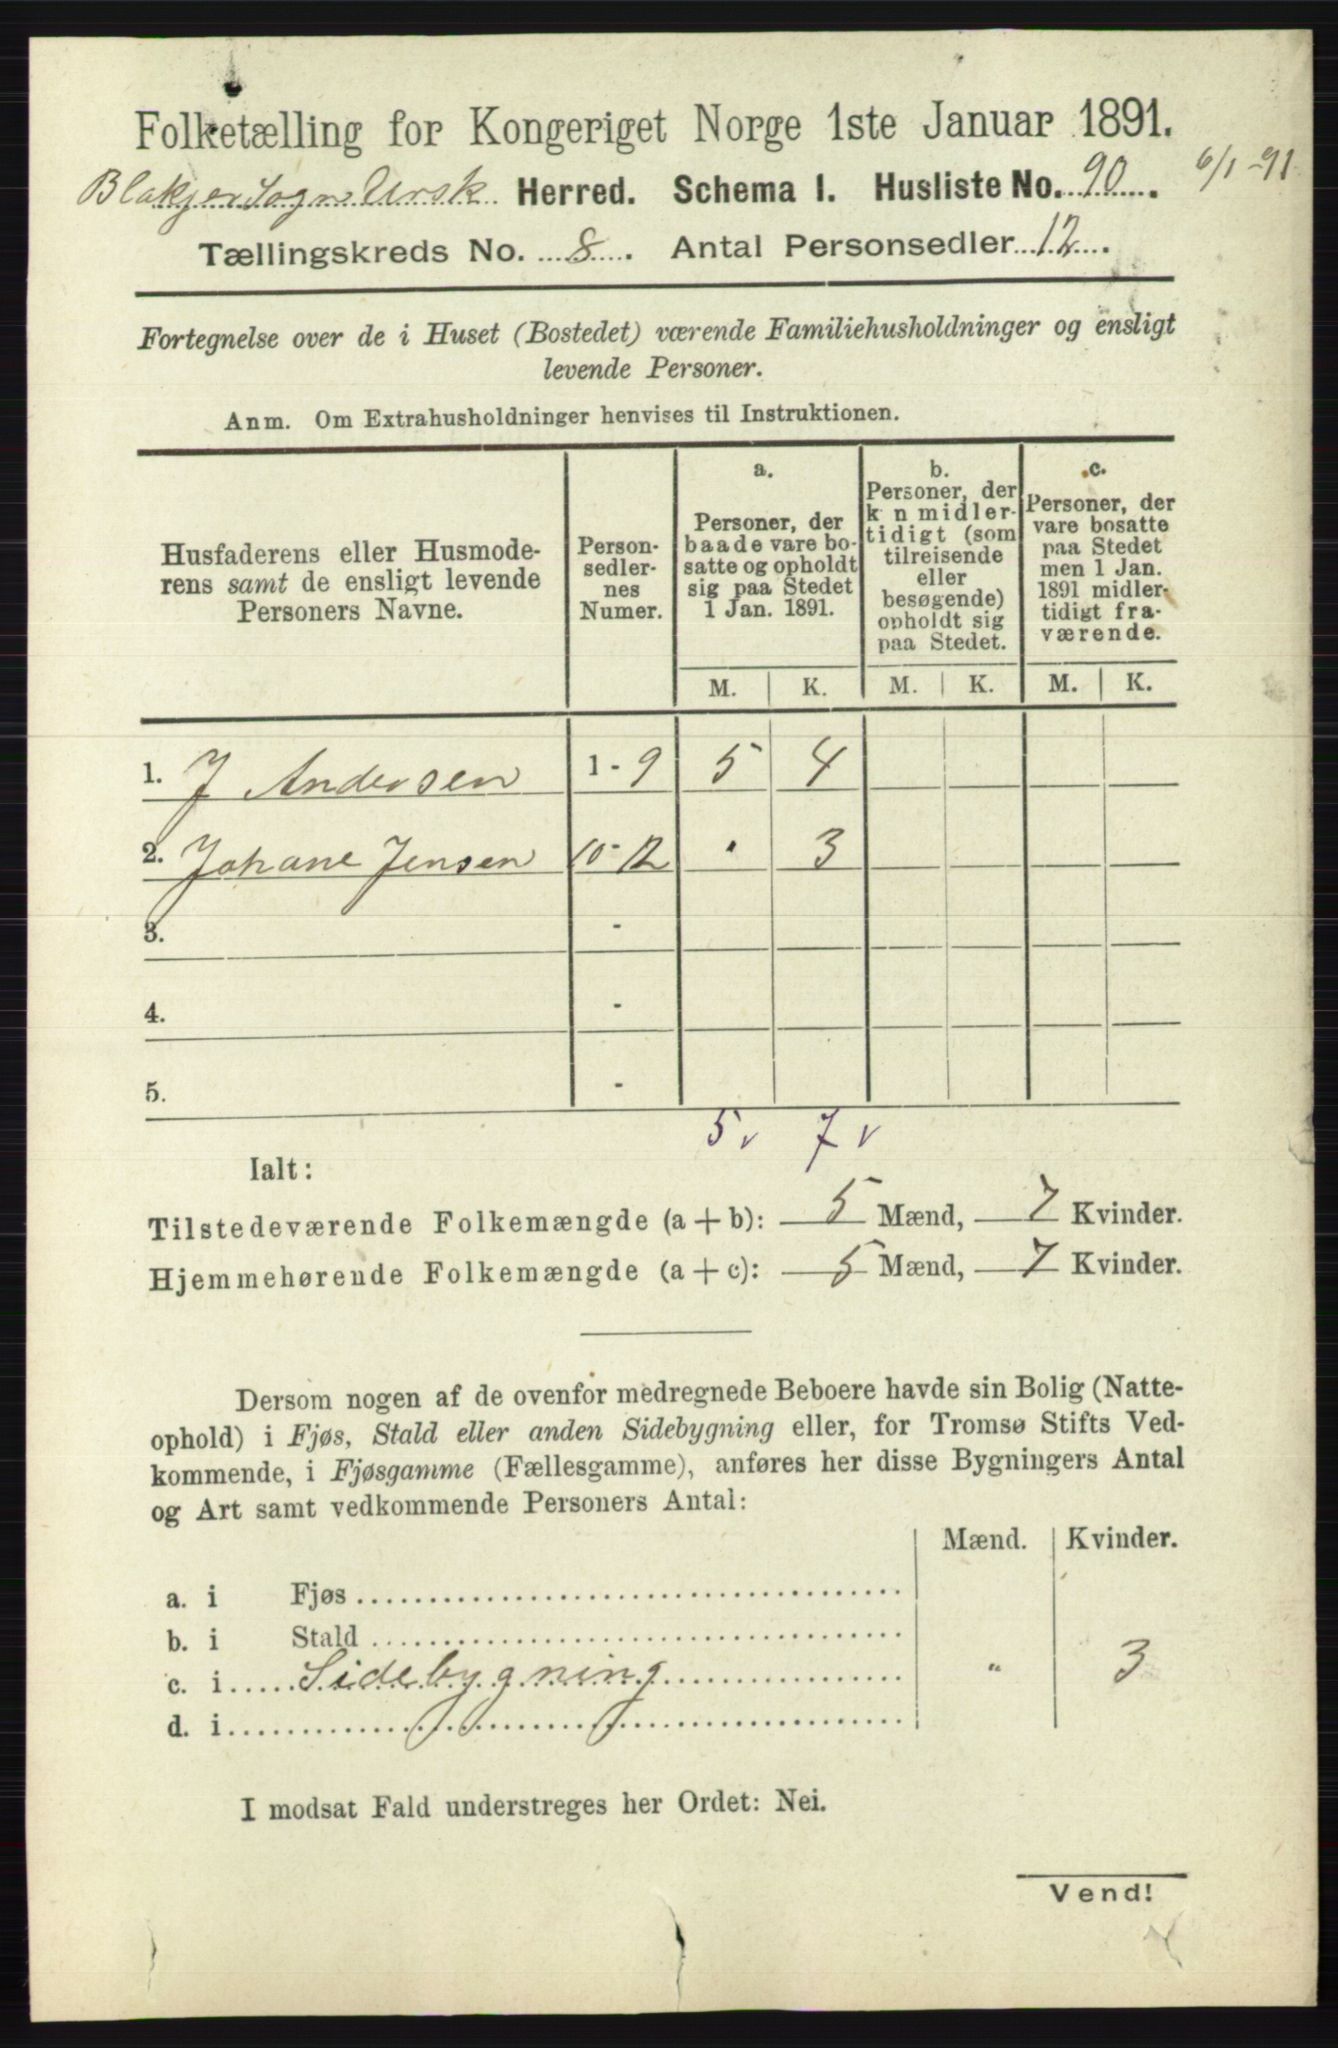 Folketælling for Kongeriget Norge 1ste Januar 1891.
Blakjer Sogn Ursk Herred. Schema 1. Husliste No. 90. 6/1-91
Tællingskreds No. 8. Antal Personsedler 12.
Fortegnelse over de i Huset (Bostedet) værende Familiehusholdninger og ensligt
levende Personer.
Anm. Om Extrahusholdninger henvises til Instruktionen.
Husfaderens eller Husmode-
rens samt de ensligt levende
Personers Navne.
Person-
sedler-
nes
Numer.
a.
Personer, der
baade vare bo-
satte og opholdt
sig paa Stedet
1 Jan. 1891.
b.
Personer, der
k n midler-
tidigt (som
tilreisende
eller
besøgende)
opholdt sig
paa Stedet.
c.
Personer, der
vare bosatte
paa Stedet
men 1 Jan.
1891 midler-
tidigt fra-
værende.
M. K. M. K. M. K.
1. J Andersen 1 - 9 5 4
2. Johane Jensen 10 - 12 " 3
3. -
4. -
5. -
5 v 7 v
Ialt:
Tilstedeværende Folkemængde (a + b): 5 Mænd, 7 Kvinder.
Hjemmehørende Folkemængde (a + c): 5 Mænd, 7 Kvinder.
Dersom nogen af de ovenfor medregnede Beboere havde sin Bolig (Natte-
ophold) i Fjøs, Stald eller anden Sidebygning eller, for Tromsø Stifts Ved-
kommende, i Fjøsgamme (Fællesgamme), anføres her disse Bygningers Antal
og Art samt vedkommende Personers Antal:
Mænd. Kvinder.
a. i Fjøs
b. i Stald
c. i Sidebygning " 3
d. i
I modsat Fald understreges her Ordet: Nei.
Vend!